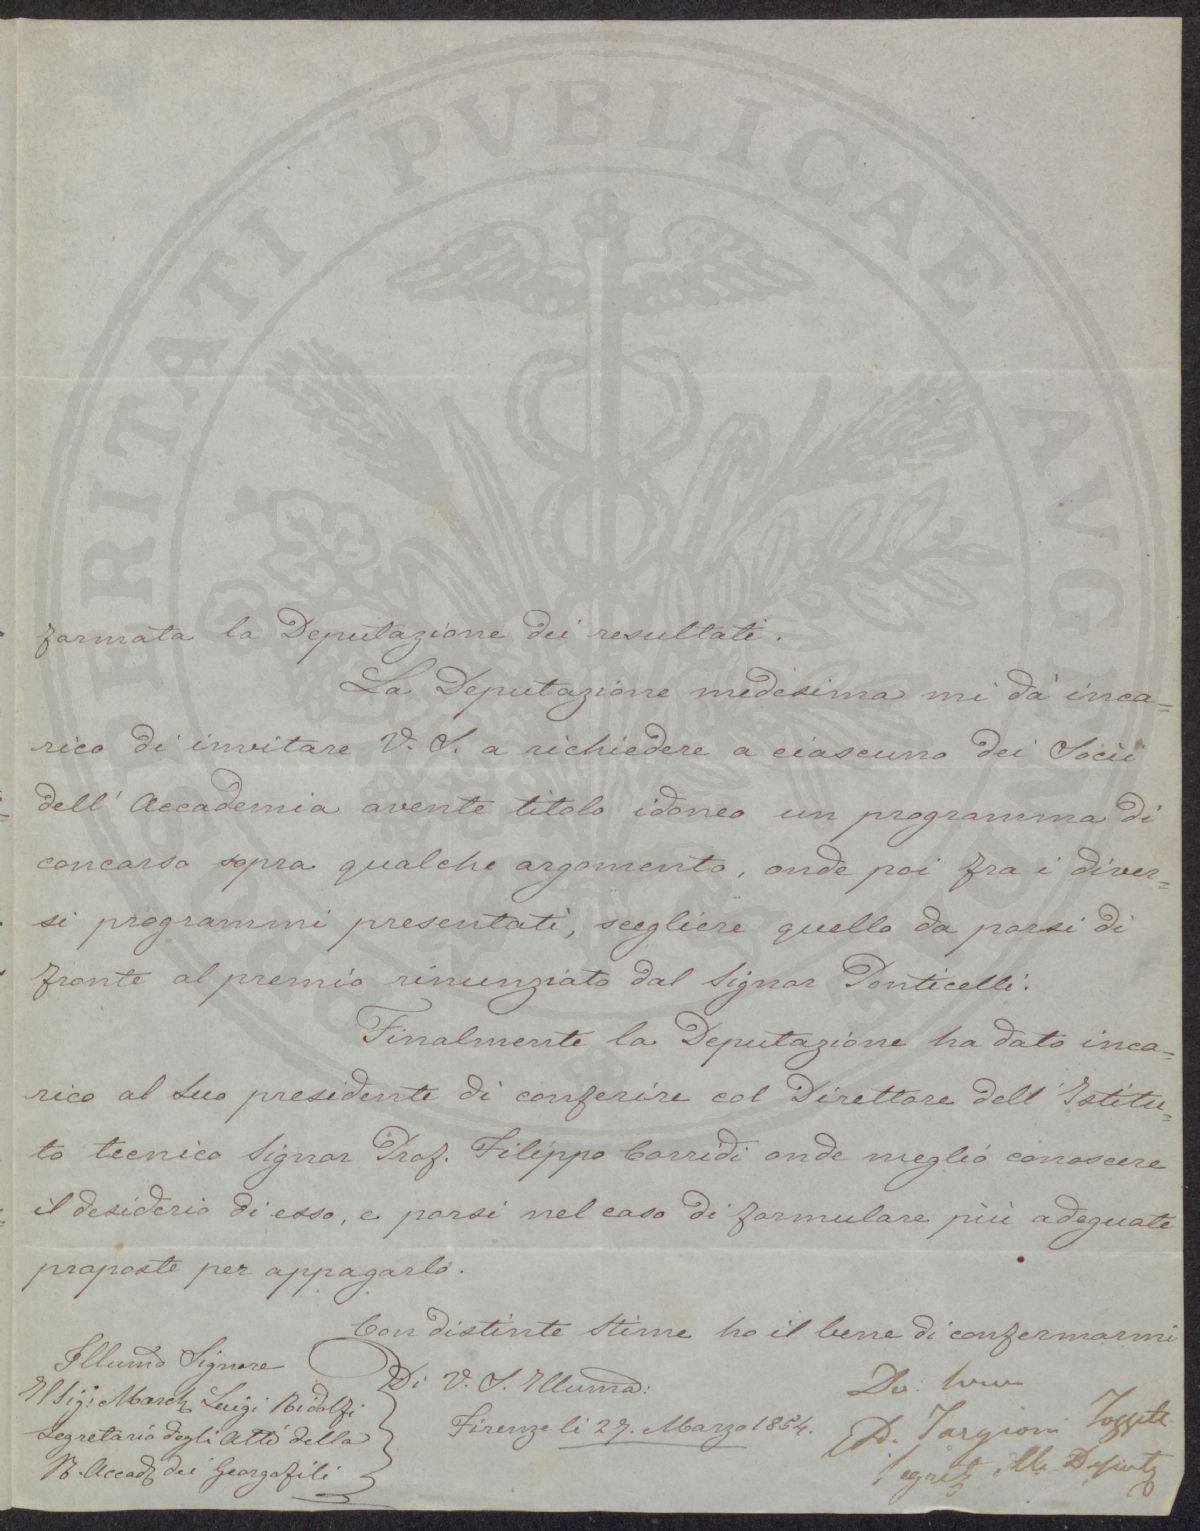 PROSPERITATI PVBLICAE AVGENDAE
formata la Deputazione dei resultati.
La Deputazione medesima mi dà inca=
rico di invitare V. S. a richiedere a ciascuno dei Socii
dell' Accademia avente titolo idoneo un programma di
concorso sopra qualche argomento, onde poi fra i diver=
si programmi presentati, scegliere quello da porsi di
fronte al premio rinunziato dal Signor Ponticelli.
Finalmente la Deputazione ha dato inca=
rico al suo presidente di conferire col Direttore dell' Istitu=
to tecnico Signor Prof. Filippo Corridi onde meglio conoscere
il desiderio di esso, e porsi nel caso di formulare più adeguate
proposte per appagarlo.
Con distinte stime ho il bene di confermarmi
Di V. S. Illuma:
Firenze li 27. Marzo 1854.
Illumo Signore
Il Sig: March Luigi Ridolfi
Segretario degli Atti della
R. Accad dei Georgofili
Targioni Tozzetti